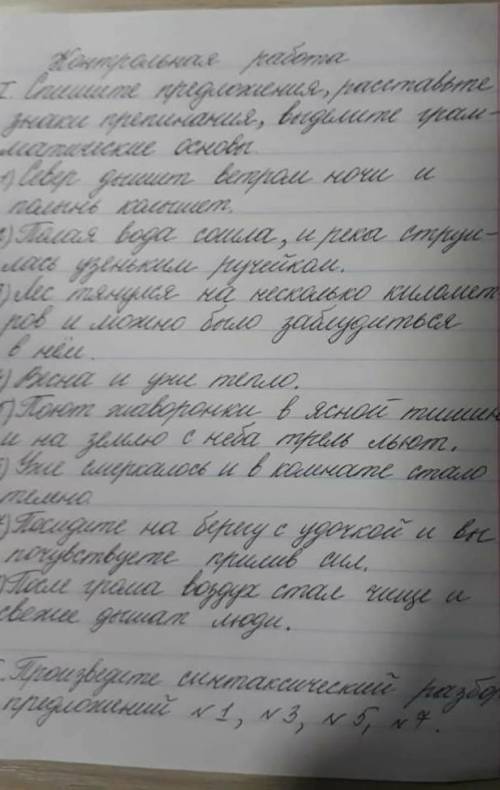 Контрольная работа
I. Спишите предложения, расставьте
знаки препинания, выделите грам-
матические основы.
1) Север дышит ветром ночи и
полынь колышет.
2) Полая вода сошла, и река струи-
лась узеньким ручейком.
3) Лес тянулся на несколько километ
ров и можно было заблудиться
в нём.
4) Весна и уже тепло.
5) Поют жаворонки в ясной тишин
и на землю с неба трель льют.
6) Уже смеркалось и в комнате стало
темно
7) Посидите на берегу с удочкой и вы
почувствуете прилив сил.
8) После грома воздух стал чище и
свежее дышат люди.
Произведите синтаксический разбор
предложений №1, №3, №5, №7.